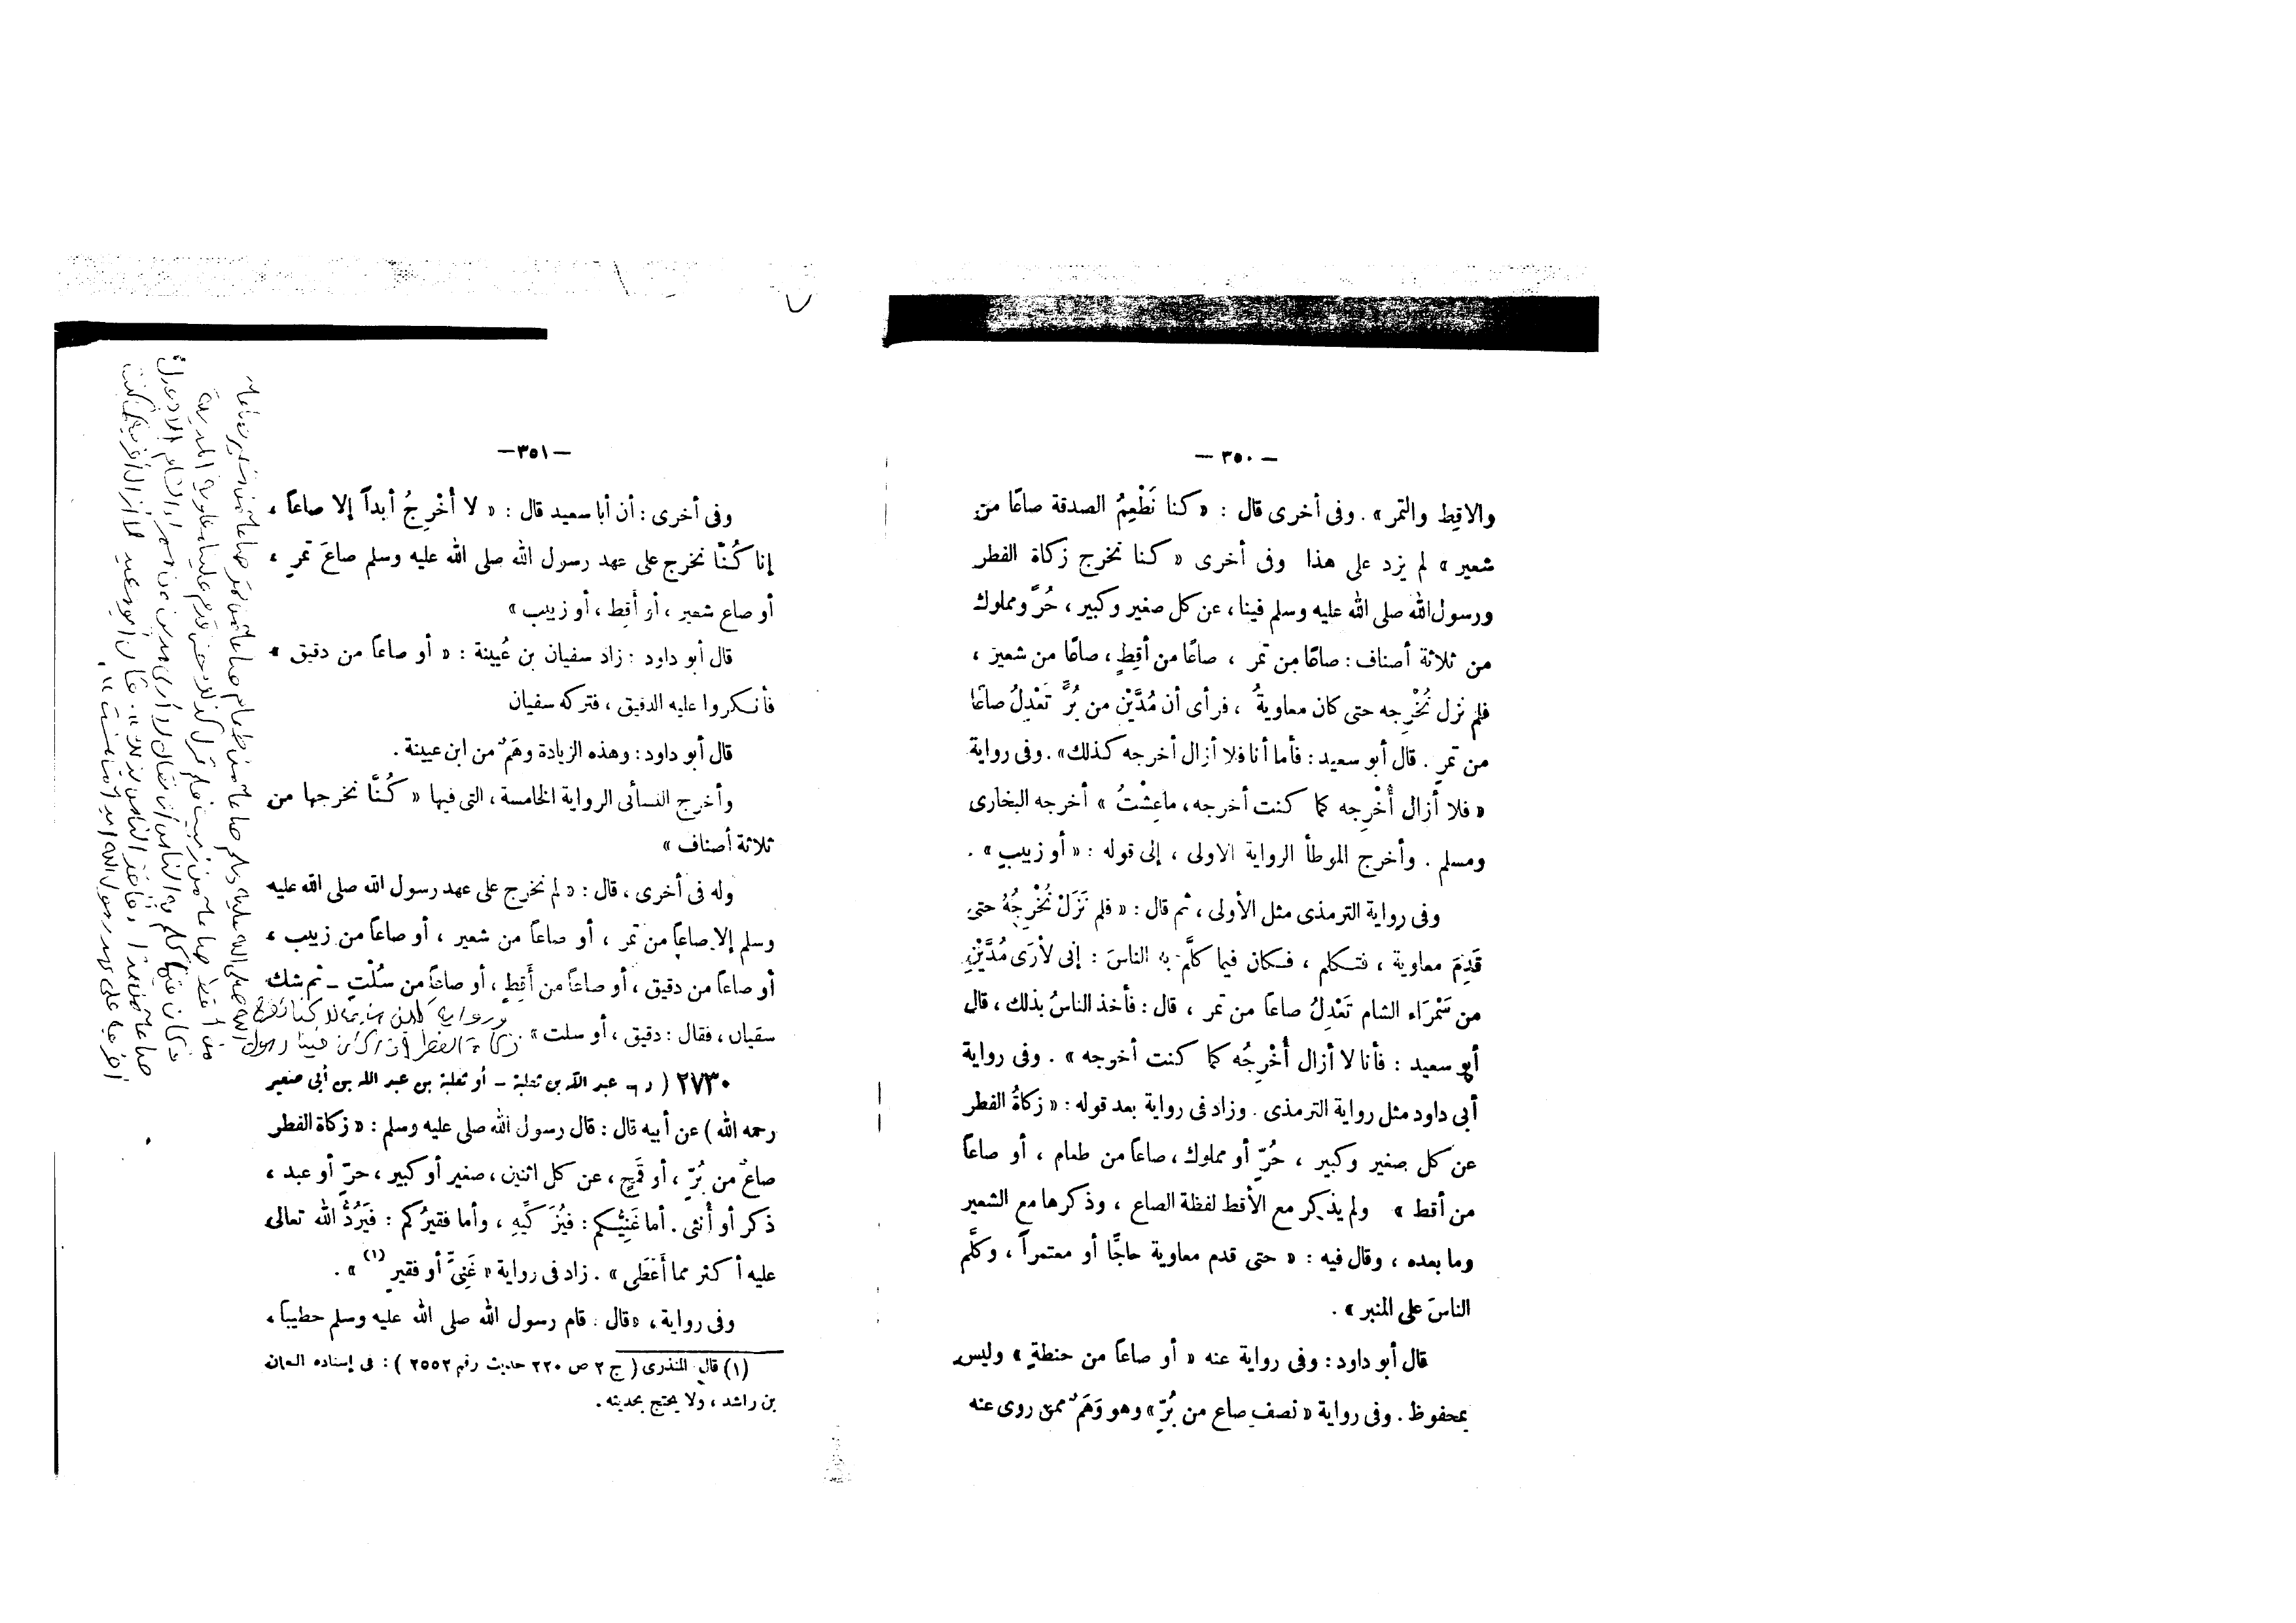 — ٣٥٠ —
والاقِط والتمر» . وفى أخرى قال : «كنا نَطْعِمُ الصدقة صاعًا من
شعير» لم يزد على هذا وفى أخرى «كنا نخرج زكاة الفطر
ورسول الله صلى الله عليه وسلم فينا ، عن كل صغير وكبير ، حُرّ ومملوك
من ثلاثة أصناف : صاعًا من تمر ، صاعًا من أقِطٍ ، صاعًا من شعيز ،
فلم نزل نُخْرِجه حتى كان معاويةُ ، فرأى أن مُدَّيْن من بُرٍّ تَعْدِلُ صاعًا
من تمرٍ . قال أبو سعيد : فأما أنا فلا أزال أخرجه كذلك» . وفى رواية
«فلا أزال أُخْرِجه كما كنت أخرجه ، ماعِشْتُ» أخرجه البخارى
ومسلم . وأخرج الموطأ الرواية الاولى ، إلى قوله : «أو زبيبٍ» .
وفى رواية الترمذى مثل الأولى ، ثم قال : «فلم نَزَلْ نُخْرِجُهُ حتى
قَدِمَ معاوية ، فتكلم ، فكان فيما كلَّم به الناسَ : إنى لأرَى مُدَّيْنِ
من سَمْرَاء الشام تَعْدِلُ صاعًا من تمر ، قال : فأخذ الناسُ بذلك ، قال
أبو سعيد : فأنا لا أزال أُخْرِجُه كما كنت أخرجه» . وفى رواية
أبى داود مثل رواية الترمذى . وزاد فى رواية بعد قوله : «زكاةُ الفطر
عن كل صغير وكبير ، حُرٍّ أو مملوك ، صاعاً من طعام ، أو صاعاً
من أقط» ولم يذكر مع الأقط لفظة الصاع ، وذكرها مع الشعير
وما بعده ، وقال فيه : «حتى قدم معاوية حاجًّا أو معتمراً ، وكلَّم
الناسَ على المنبر» .
قال أبو داود : وفى رواية عنه «أو صاعاً من حنطةٍ» وليس
بمحفوظ . وفى رواية «نصف صاع من بُرٍّ» وهو وَهَمٌ ممن روى عنه
— ٣٥١ —
وفى أخرى : أن أبا سعيد قال : «لا أُخْرِجُ أبداً إلا صاعاً ،
إنا كُنَّا نخرج على عهد رسول الله صلى الله عليه وسلم صاعَ تمرٍ ،
أو صاع شعير ، أو أَقِط ، أو زبيب»
قال أبو داود : زاد سفيان بن عُيينة : «أو صاعاً من دقيق»
فأنكروا عليه الدقيق ، فتركه سفيان
قال أبو داود : وهذه الزيادة وهَمٌ من ابن عيينة .
وأخرج النسائى الرواية الخامسة ، التى فيها «كُنَّا نخرجها من
ثلاثة أصناف»
وله فى أخرى ، قال : «لم نخرج على عهد رسول الله صلى الله عليه
وسلم إلا صاعاً من تمر ، أو صاعاً من شعير ، أو صاعاً من زبيب ،
أو صاعاً من دقيق ، أو صاعاً من أَقِطٍ ، أو صاعاً من سُلْتٍ – ثم شك
سفيان ، فقال : دقيق ، أو سلت» .
٢٧٣٠ ( د – عبد الله بن ثعلبة – أو ثعلبة بن عبد الله بن أبى صعير
رحمه الله ) عن أبيه قال : قال رسول الله صلى عليه وسلم : «زكاة الفطر
صاعٌ من بُرٍّ ، أو قَمحٍ ، عن كل اثنين ، صغير أو كبير ، حرّ أو عبد ،
ذكر أو أُنثى . أما غَنِيُّكم : فيُزَكِّيهِ ، وأما فقيرُكم : فيَرُدُّ الله تعالى
عليه أكثر مما أَعْطَى» . زاد فى رواية «غَنِىٍّ أو فقيرٍ (١)» .
وفى رواية ، «قال : قام رسول الله صلى الله عليه وسلم خطيباً ،
(١) قال المنذرى ( ج ٢ ص ٢٢٠ حديث رقم ٢٥٥٢ ) : فى إسناده النعمان
بن راشد ، ولا يحتج بحديثه .
زكاة الفطر إذ كان فينا رسول
الله صلى الله عليه وسلم صاعاً من طعام صاعاً من تمر صاعاً من شعير صاعاً
من أقط صاعاً من زبيب فلم نزل كذلك حتى قدم علينا معاوية المدينة
فكان فيما كلم به الناس أن قال إنى لأرى مدين من سمراء الشام إلا تعدل
صاعاً من هذا ، فأخذ الناس بذلك» . قال أبو سعيد لا أزال أخرجه كما كنت
أخرجه على عهد رسول الله أبداً ما عشت» .